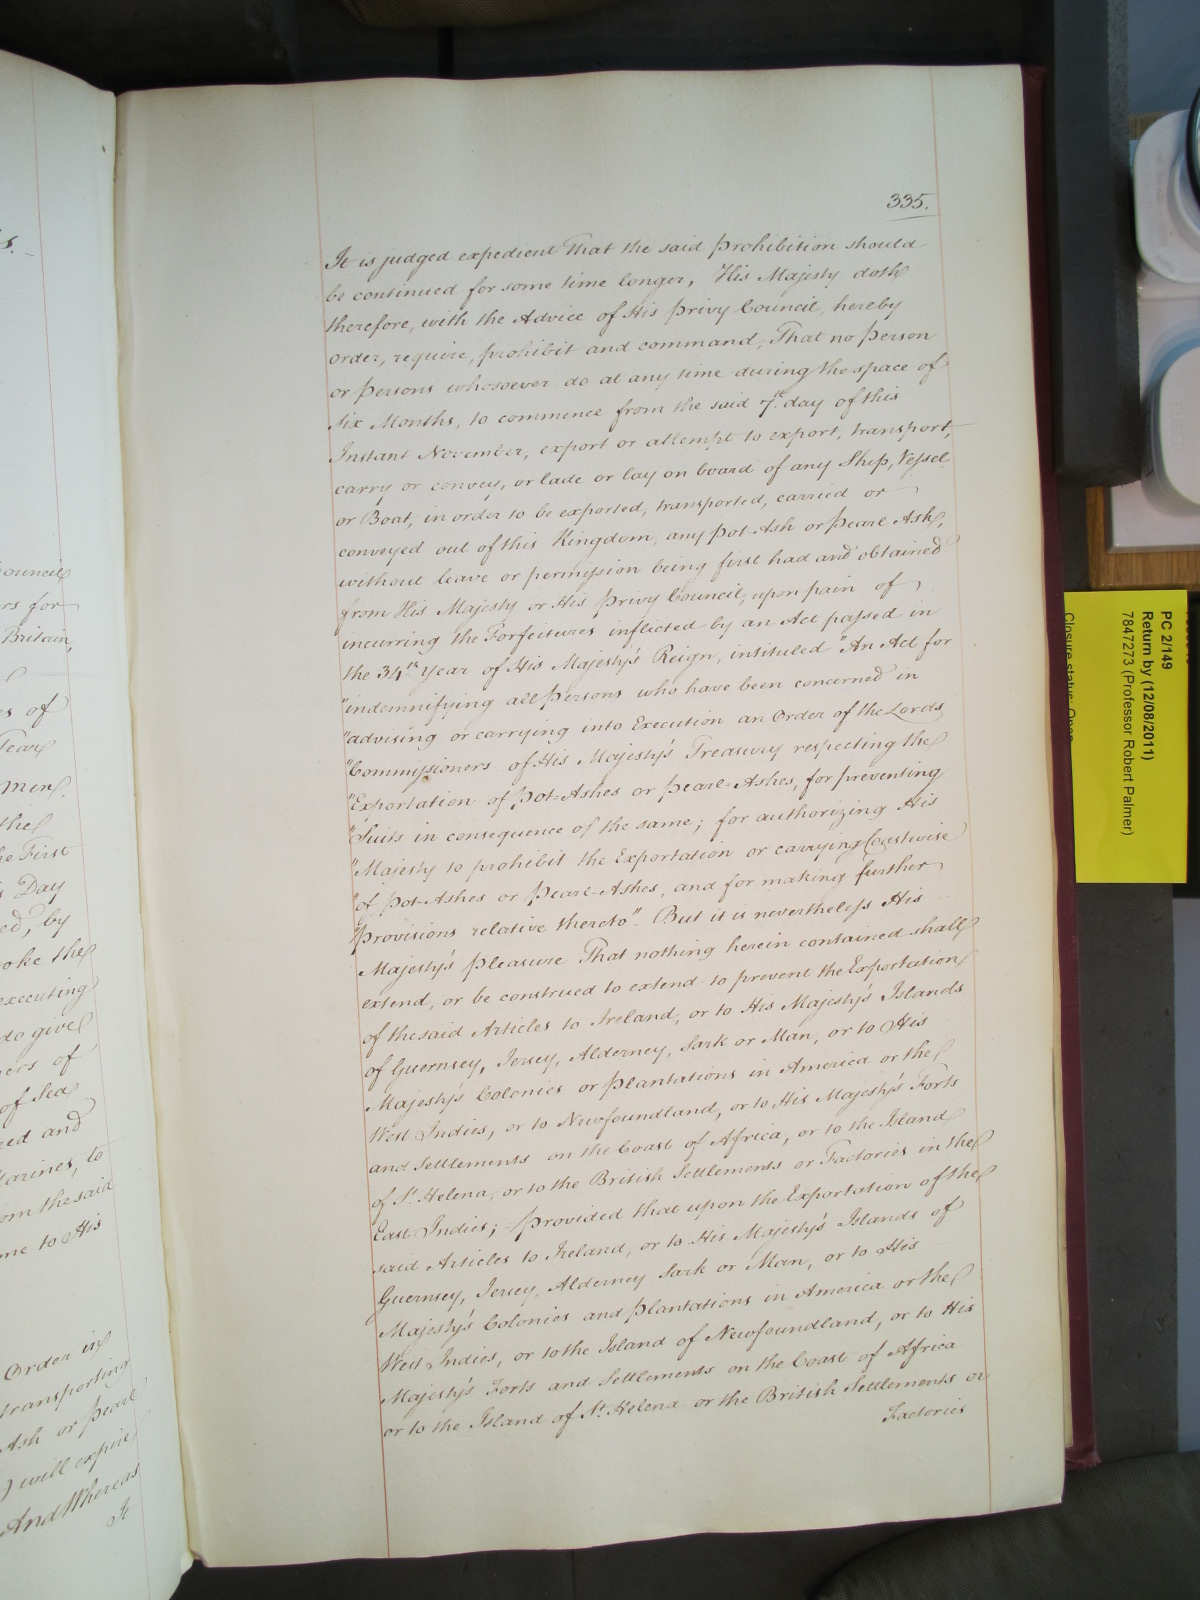 335.
It is judged expedient That the said Prohibition should
be continued for some time longer, His Majesty doth
therefore, with the Advice of His Privy Council, hereby
order, require, prohibit and command, That no Person
or Persons whosoever do at any time during the space of
Six Months, to commence from the said 7th. day of this
Instant November, export or attempt to export, transport,
carry or convey, or lade or lay on board of any Ship, Vessel
or Boat, in order to be exported, transported, carried or
conveyed out of this Kingdom, any Pot Ash or Pearl Ash,
without leave or permission being first had and obtained
from His Majesty or His Privy Council, upon pain of
incurring the Forfeitures inflicted by an Act passed in
the 34th. Year of His Majesty's Reign, intituled "An Act for
"indemnifying all Persons who have been concerned in
"advising or carrying into Execution an Order of the Lords
"Commissioners of His Majesty's Treasury respecting the
"Exportation of Pot-Ashes or Pearl-Ashes, for preventing
"Suits in consequence of the same; for authorizing His
"Majesty to prohibit the Exportation or carrying Coastwise
"of Pot-Ashes or Pearl-Ashes, and for making further
"Provisions relative thereto". But it is nevertheless His
Majesty's Pleasure That nothing herein contained shall
extend, or be construed to extend to prevent the Exportation
of the said Articles to Ireland, or to His Majesty's Islands
of Guernsey, Jersey, Alderney, Sark or Man, or to His
Majesty's Colonies or Plantations in America or the
West Indies, or to Newfoundland, or to His Majesty's Forts
and Settlements on the Coast of Africa, or to the Island
of St. Helena, or to the British Settlements or Factories in the
East Indies; Provided that upon the Exportation of the
said Articles to Ireland, or to His Majesty's Islands of
Guernsey, Jersey, Alderney Sark or Man, or to His
Majesty's Colonies and Plantations in America or the
West Indies, or to the Island of Newfoundland, or to His
Majesty's Forts and Settlements on the Coast of Africa
or to the Island of St. Helena or the British Settlements or
Factories
ouncil
rs for
Britain,
es of
Year
men,
the
he First
Day
ed, by
oke the
executing
do give
ers of
of Sea
ed and
arines, to
om the said
me to His
Order in
transporting
Ash or Pearl
will expire
And Whereas
It
PC 2/149
Return by (12/08/2011)
7847273 (Professor Robert Palmer)
Closure status: Open